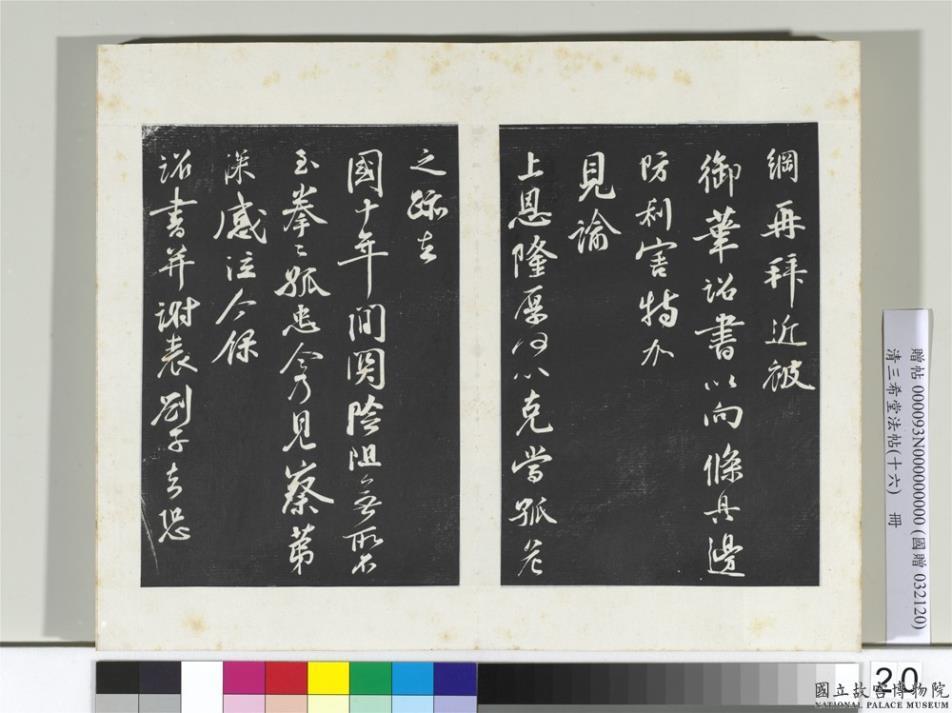 綱再拜近被
御筆詔書以向條具邊
防利害特加
見諭
上恩隆厚何以克當孤危
之蹤去
國十年間關險阻無所不
至拳拳孤忠今乃見察第
深感泣今錄
詔書并謝表劄子去恐
贈帖 000093N000000000 (國贈 032120)
清三希堂法帖(十六) 冊
20
國立故宮博物院
NATIONAL PALACE MUSEUM